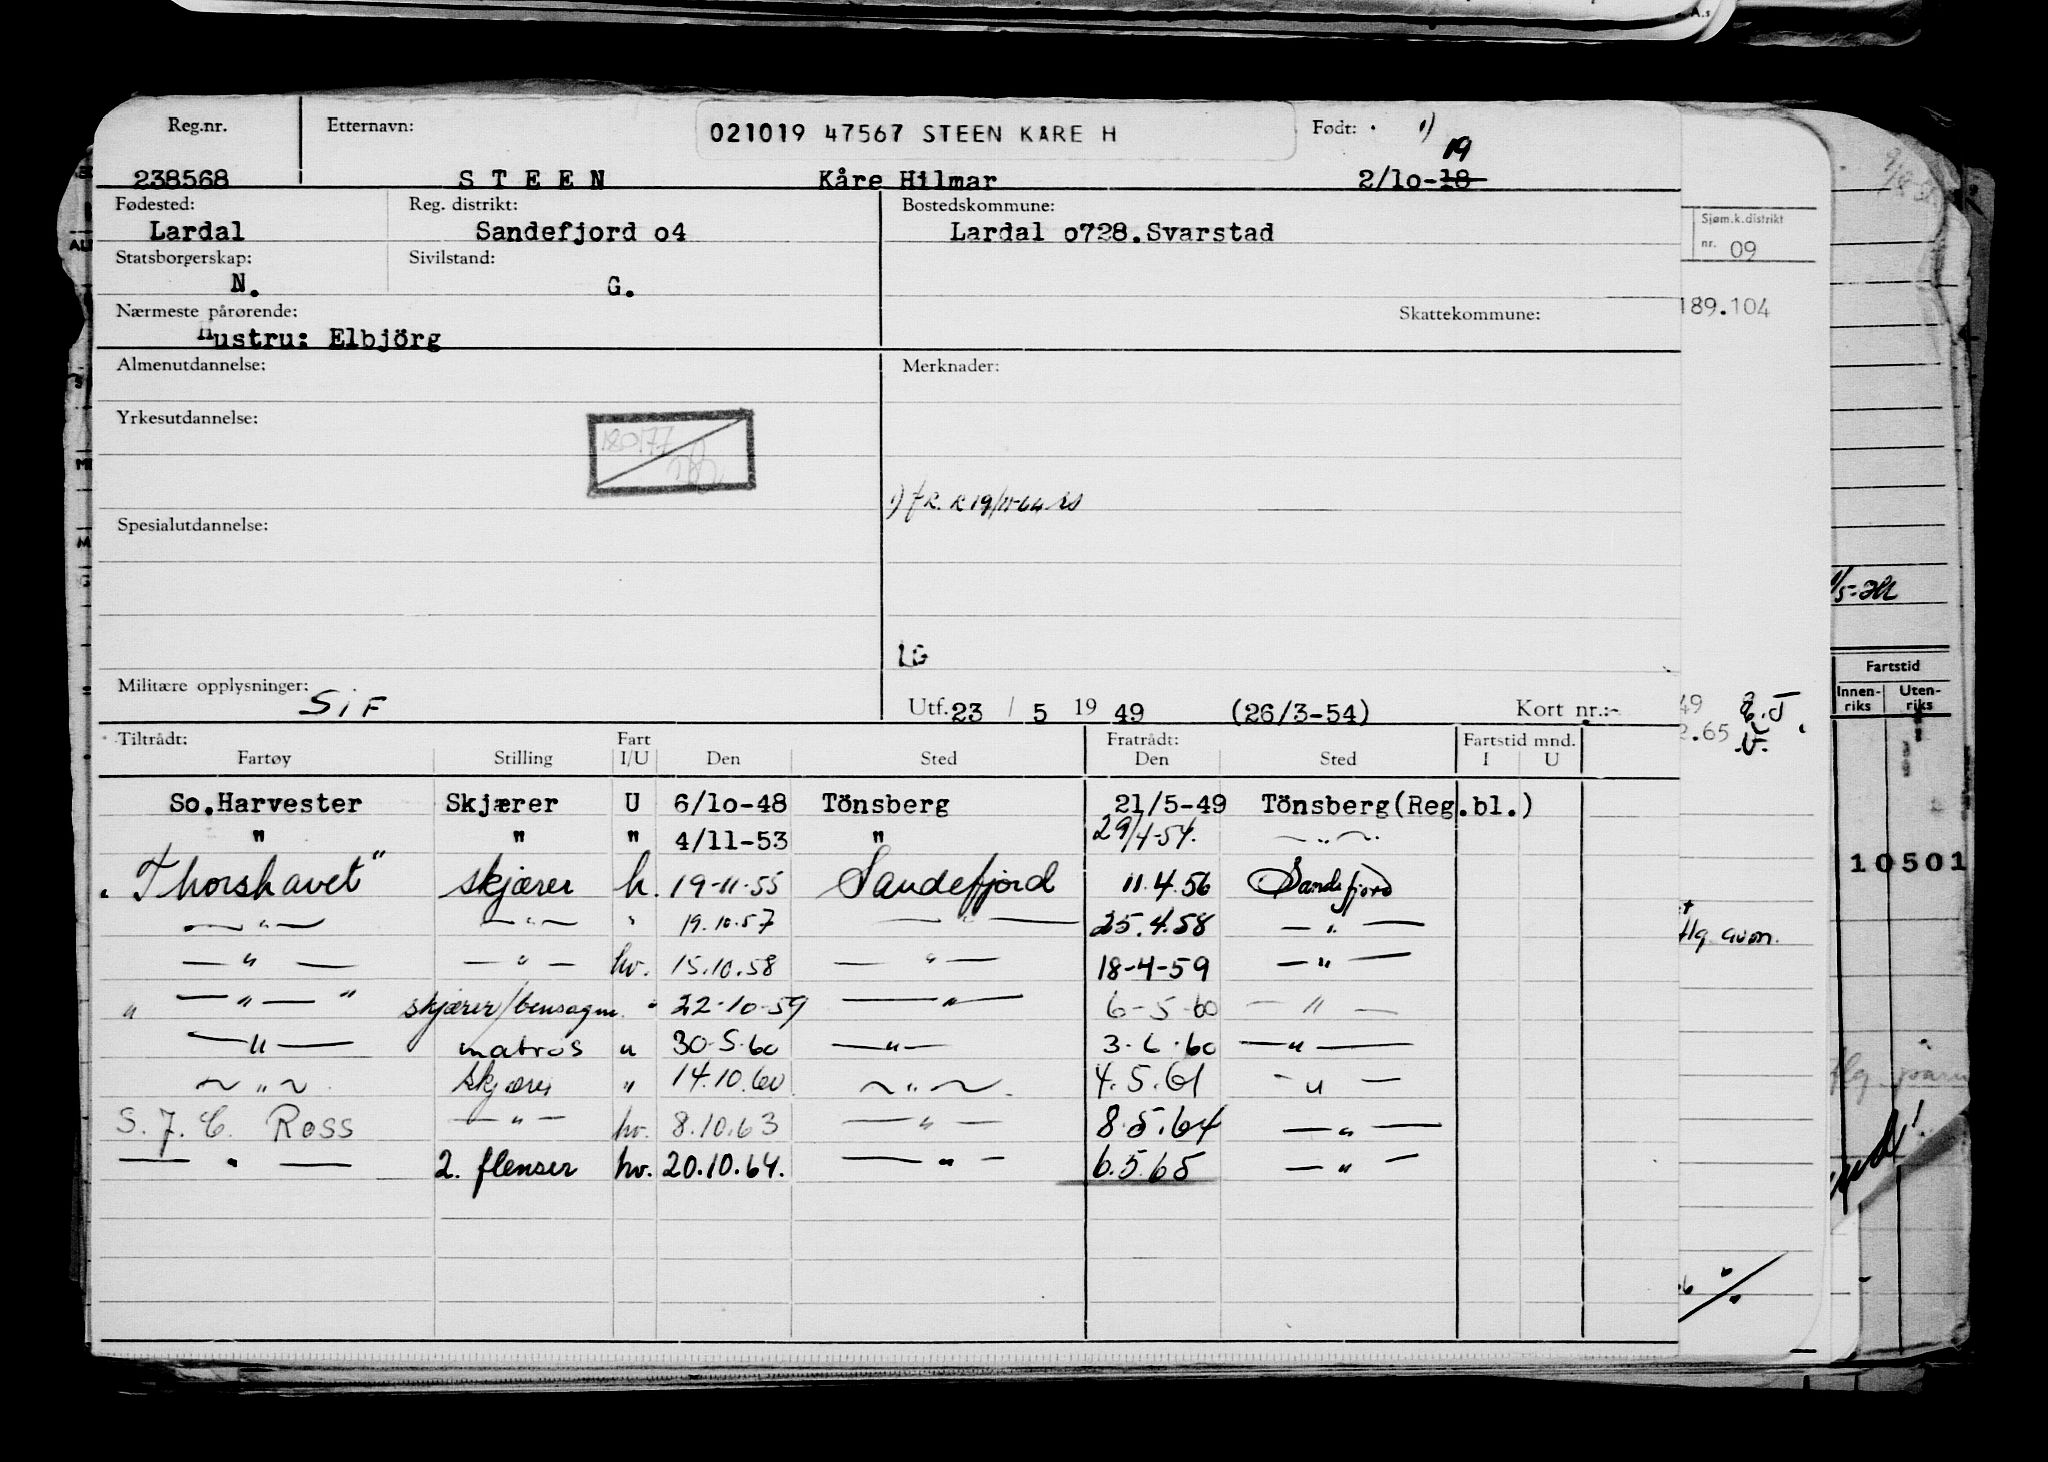 Reg.nr. Etternavn: 021019 47567 STEEN KÅRE H Født: 1)
19
238568 STEEN Kåre Hilmar 2/10-18
Fødested: Reg. distrikt: Bostedskommune:
Lardal Sandefjord o4 Lardal o728.Svarstad
Sjøm.k.distrikt
nr. 09
Statsborgerskap: Sivilstand:
N. G.
Nærmeste pårørende: Skattekommune: 189.104
Hustru: Elbjörg
Almenutdannelse: Merknader:
Yrkesutdannelse:
180177
Spesialutdannelse:
LG
Militære opplysninger: SIF Utf. 23 / 5 19 49 (26/3-54) Kort nr.:-
49
2.65
Tiltrådt: Fart Fratrådt: Fartstid mnd.
Fartøy Stilling I/U Den Sted Den Sted I U
So.Harvester Skjærer U 6/10-48 Tönsberg 21/5-49 Tönsberg(Reg.bl.)
" " " 4/11-53 " 29/4-54. — " —
"Thorshavet" skjærer h. 19-11-55 Sandefjord 11.4.56 Sandefjord
— " — — " — " 19.10.57 — " — 25.4.58 — " —
— " — — " — hv. 15.10.58 — " — 18-4-59 — " —
" — " — " skjærer/bensagm. " 22-10-59 — " — 6-5-60 — " —
— " — matros u 30.5.60 — " — 3.6.60 — " —
— " — skjærer " 14.10.60 — " — 4.5.61 — " —
S. J. C. Ross — " — hv. 8.10.63 — " — 8.5.64 — " —
— " — 2. flenser hv. 20.10.64. — " — 6.5.65 — " —
Fartstid
Innen- Uten-
riks riks
10501